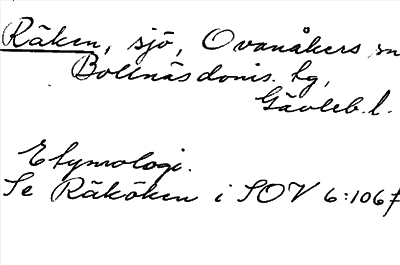 Räken, sjö, Ovanåkers sn
Bollnäs doms. hg,
Gävleb. l.
Etymologi.
Se Räköken i SOV 6:106 f